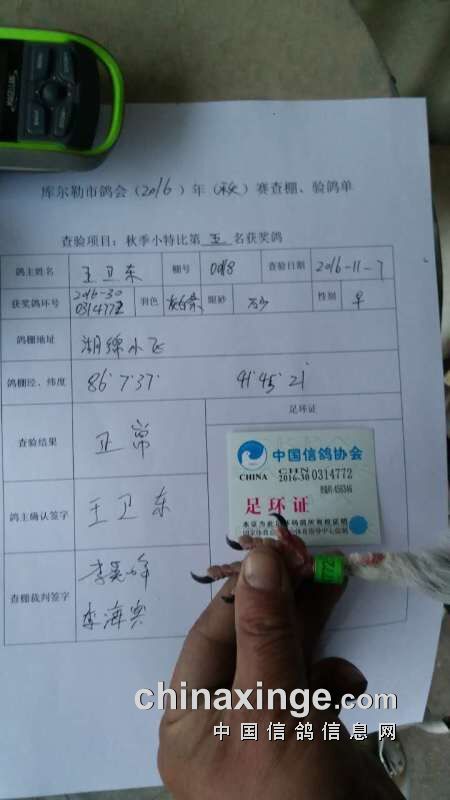 库尔勒市鸽会(2016)年(秋)赛查棚、验鸽单
查验项目：秋季小特比第 五 名获奖鸽
鸽主姓名 王卫东 棚号 0018 查验日期 2016-11-7
获奖鸽环号 2016-30 0314772 羽色 灰白条 眼砂 性别
鸽棚地址 湖绿小飞
鸽棚经、纬度 86°7′37″ 41°45′21″
查验结果 正常 足环证
鸽主确认签字 王卫东
查棚裁判签字
中国信鸽协会
CHINA CHN
2016-30 0314772
足环证
772
chinaxinge.com
中国信鸽信息网